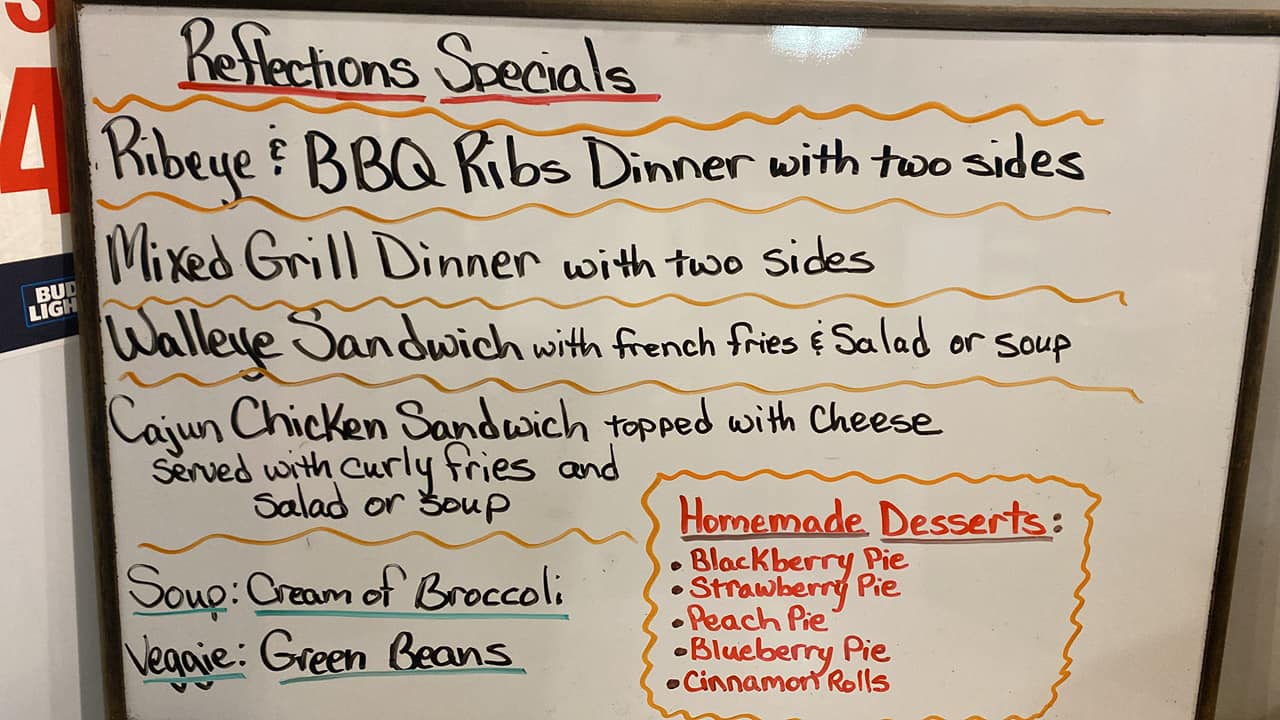 Reflections Specials
Ribeye & BBQ Ribs Dinner with two sides
Mixed Grill Dinner with two sides
Walleye Sandwich with french fries & Salad or soup
Cajun Chicken Sandwich topped with Cheese
served with curly fries and
Salad or soup
Soup: Cream of Broccoli
Veggie: Green Beans
Homemade Desserts:
• Blackberry Pie
• Strawberry Pie
• Peach Pie
• Blueberry Pie
• Cinnamon Rolls
S
4
BUD
LIGH